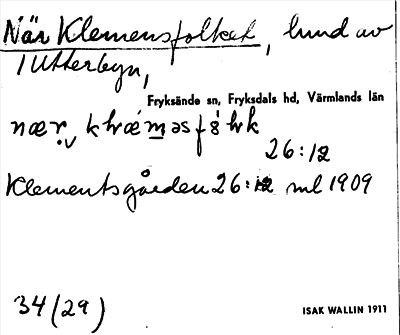 När Klemensfolket, hund av
i Utterbyn,
Fryksände sn, Fryksdals hd, Värmlands län
26:12
Klementsgården 26:12 ml 1909
34 (29)
ISAK WALLIN 1911